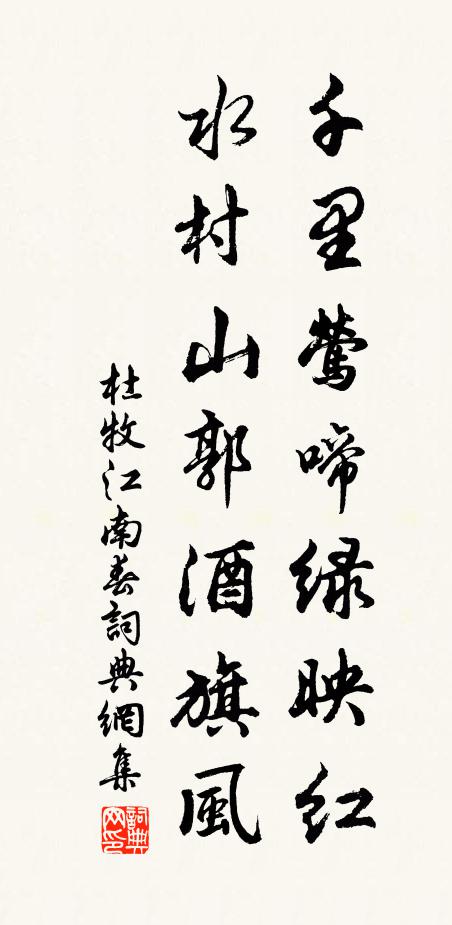 千里鶯啼緑映紅
水村山郭酒旗風
杜牧江南春詞典網集
詞典网印